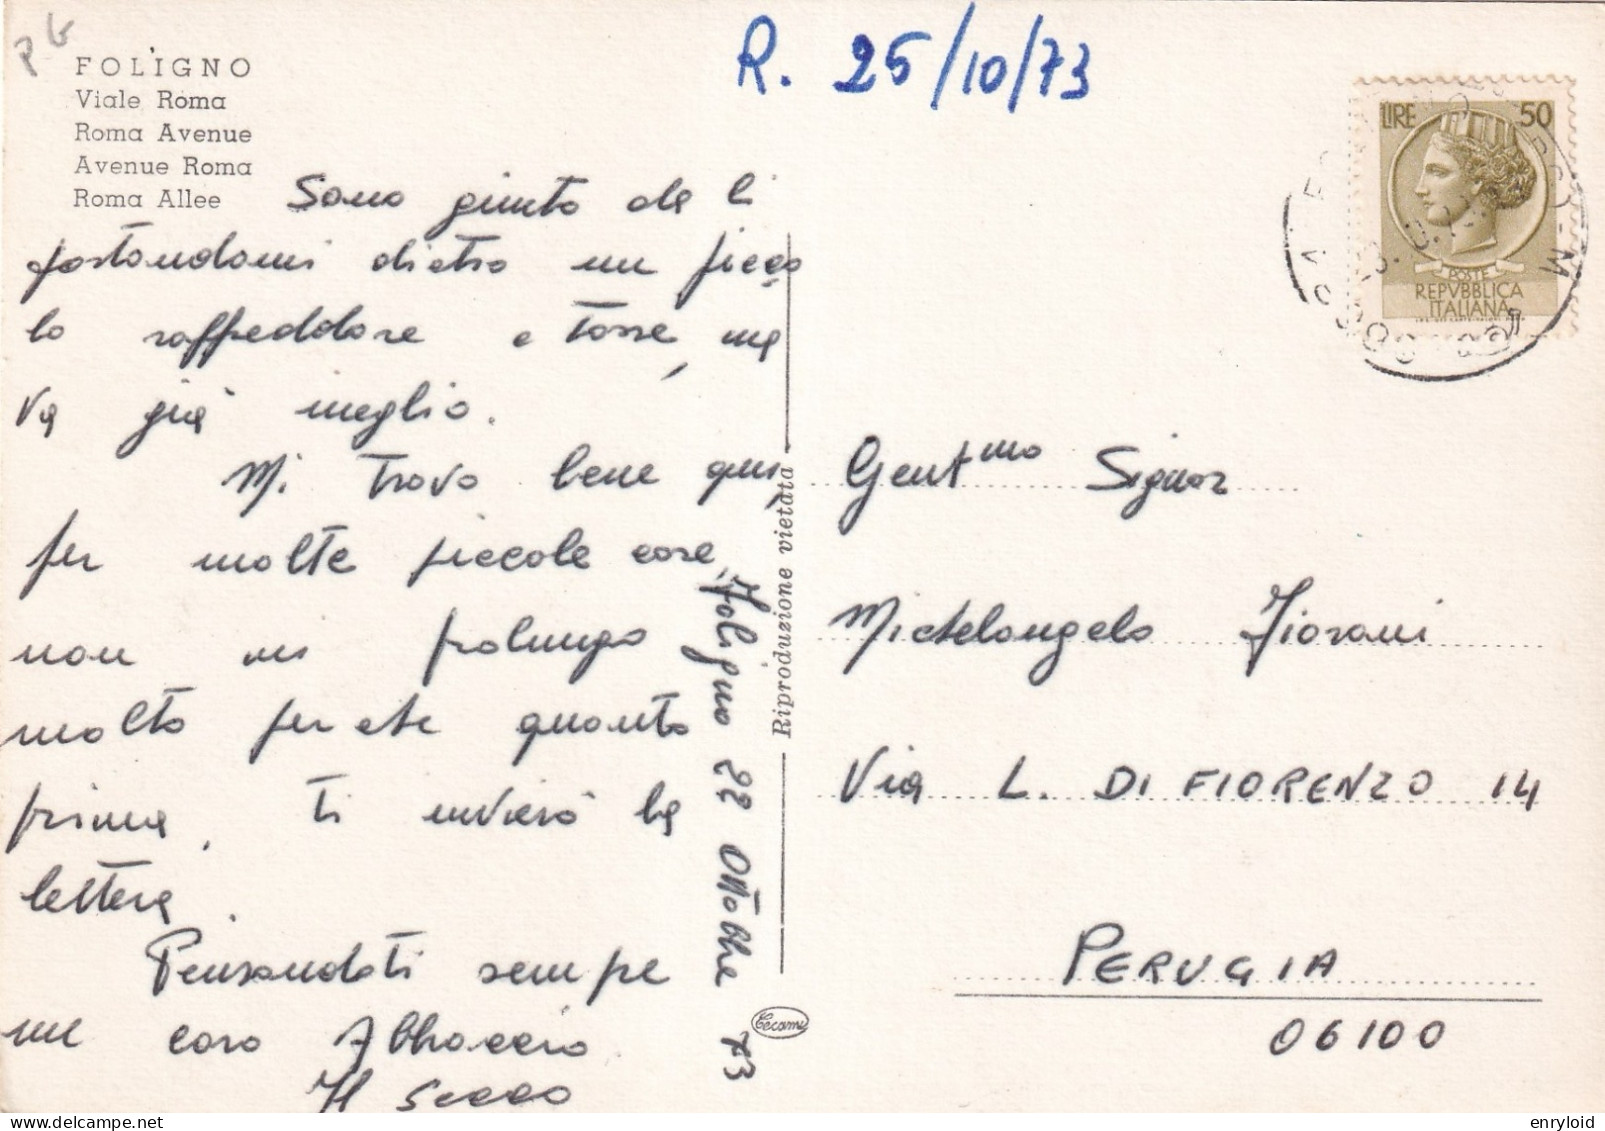 R. 25/10/73
FOLIGNO
Viale Roma
Roma Avenue
Avenue Roma
Roma Allee
Sono giunto da lì
portandomi dietro un picco
lo raffreddore e tosse, ma
va già meglio.
Mi trovo bene qui,
per molte piccole cose,
non mi prolungo
molto perché quanto
prima, ti invierò la
lettera.
Pensandoti sempre
un caro Abbraccio
Foligno 22 Ottobre 73
Riproduzione vietata
Cecami
LIRE 50
POSTE
REPVBBLICA
ITALIANA
Gent.mo Signor
Michelangelo Fiorani
Via L. DI FIORENZO 14
PERUGIA
06100
enryloid